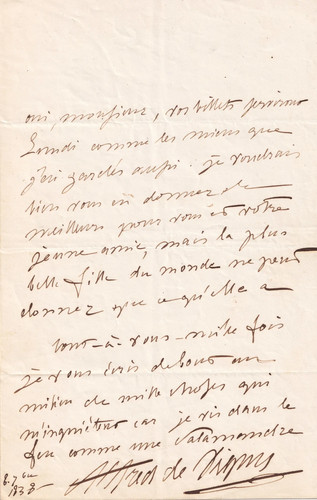 oui monsieur, vos billets serviront
Lundi comme les miens que
j'ai gardés aussi. je voudrais
bien vous en donner de
meilleurs pour vous et votre
jeune amie, mais la plus
belle fille du monde ne peut
donner que ce qu'elle a
tout-à-vous mille fois
je vous écris debout au
milieu de mille choses qui
m'inquiètent car je vis dans le
feu comme une Salamandre
Alfred de Vigny
8. 7bre
1838